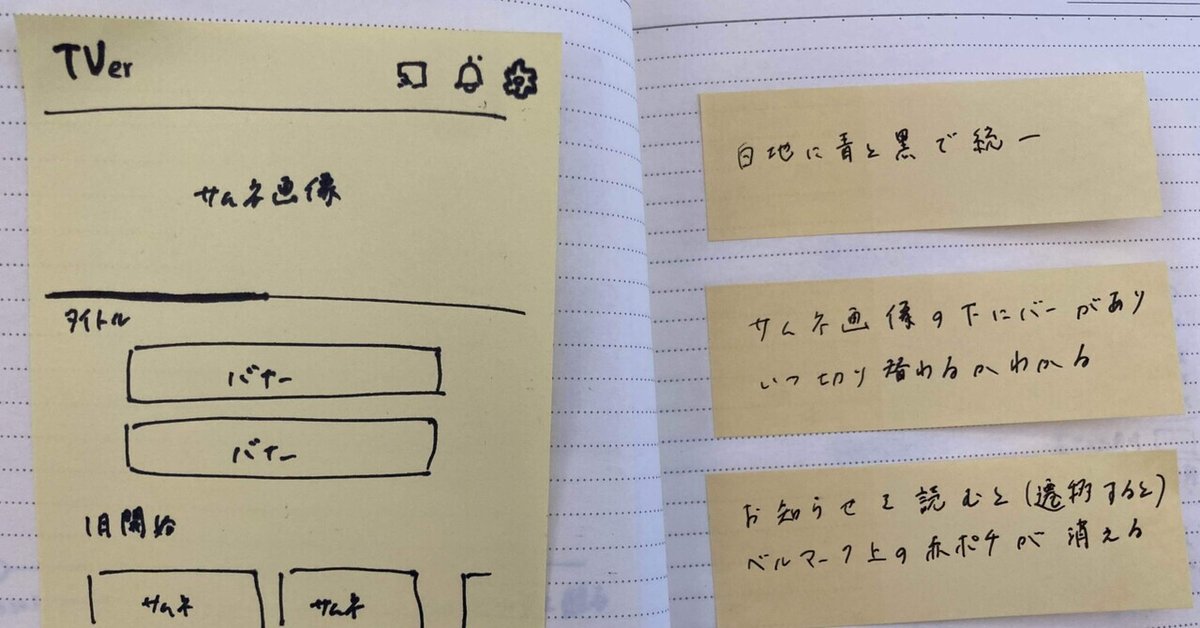 TVer
サムネ画像
タイトル
バナー
バナー
1月開始
サムネ
サムネ
白地に青と黒で統一
サムネ画像の下にバーがあり
いつ切り替わるかわかる
お知らせを読むと(遷移すると)
ベルマーク上の赤ポチが消える